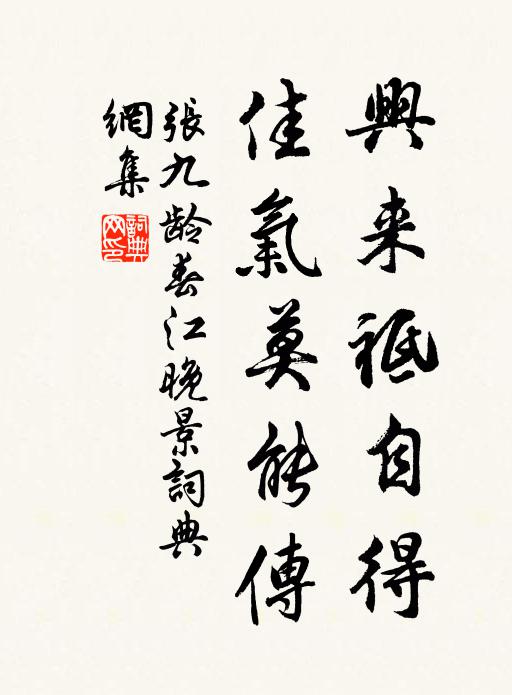 興来祗自得
佳氣莫能傳
張九齡春江晚景詞典
網集
詞典
网印